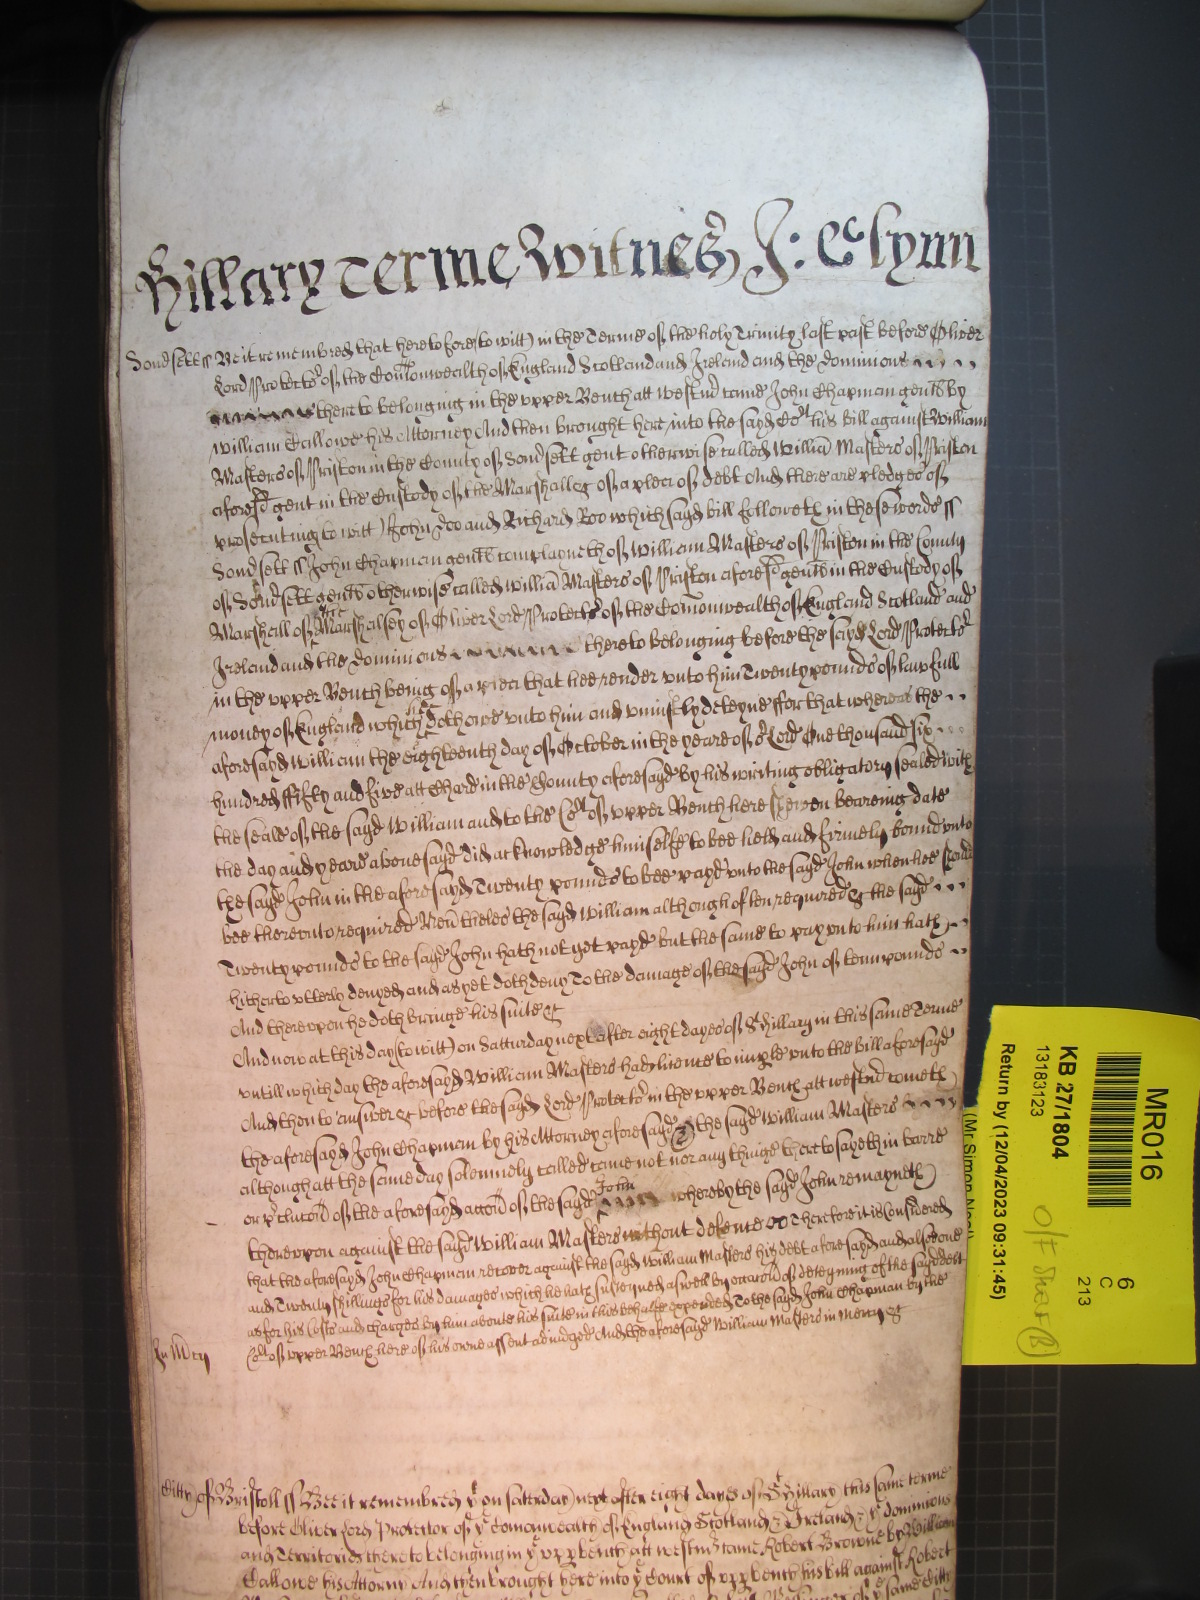 Hillary Terme Witnes J: Glynn
Som'sett ss Be it remembred that heretofore (to witt) in the Terme of the holy Trinity last past before Oliver
Lord Protector of the Com̄onwealth of England Scotland and Ireland and the dominions
thereto belonging in the upper Bench att Westm̄ came John Chapman gent by
William Callowe his Attorney And then brought here into the sayd Cort his bill against William
Masters of Priston in the County of Som'sett gent otherwise called Willia͞ Masters of Priston
aforesd gent in the Custody of the Marshall &c of a plea of debt And there are pledges of
prosecuting to witt) John Doo and Richard Roo which sayd bill followeth in these words ss
Som'sett ss John Chapman gent complayneth of William Masters of Priston in the County
of Som'sett gent otherwise called Willia͞ Masters of Priston aforesd gent in the Custody of
Marshall of the Marshalsey of Oliver Lord Protector of the Com̄onwealth of England Scotland and
Ireland and the dominions thereto belonging before the sayd Lord Protector
in the upper Bench being of a plea that hee render unto him Twenty pounds of lawfull
money of England which hee doth owe unto him and uniustly deteyne ffor that whereas the
aforesayd William the eighteenth day of October in the yeare of or Lord One thousand six
hundred ffifty and five att Chard in the County aforesayd by his writing obligatory sealed with
the seale of the sayd William and to the Cort of upper Bench here shewen beareing date
the day and yeare abovesayd did acknowledge himselfe to bee held and firmely bound unto
the sayd John in the aforesayd Twenty pounds to bee payd unto the sayd John when hee should
bee thereunto required Neūtheles the sayd William although often required &c the sayd
Twenty pounds to the sayd John hath not yet payd but the same to pay unto him hath
hitherto utterly denyed and as yet doth deny To the damage of the sayd John of tenn pounds
And thereupon he doth bringe his suite &c
And now at this day (to witt) on Satturday next after eight dayes of St Hillary in this same Terme
untill which day the aforesayd William Masters had licence to imple unto the bill aforesayd
And then to answer &c before the sayd Lord Protector in the upper Bench att Westm̄ cometh
the aforesayd John Chapman by his Attorney aforesayd & the sayd William Masters
although att the same day solemnely called came not nor any thinge thereto sayeth in barre
or p'clusion of the aforesayd accon̄ of the sayd John whereby the sayd John remayneth
thereupon against the sayd William Masters without defence &c Therefore it is considered
that the aforesayd John Chapman recover against the sayd William Masters his debt aforesayd and also one
and Twenty shillings for his damages which he hath susteyned aswell by occasion of deteyning of the sayd debt
as for his Costs and charges by him about his suite in this behalfe expended To the sayd John Chapman by the
Cort of upper Bench here of his owne assent adiudged And the aforesayd William Masters in Mercy &c
In M'cy
Citty of Bristoll ss Bee it remembred yt on saterday next after eight dayes of St Hillary this same terme
before Oliver Lord Protector of ye Comonwealth of England Scotland & Ireland & ye dominions
and Territories thereto belonging in ye upp bench att westm̄ came Robert Browne by William
Callowe his Attorny And then brought here into ye Court of upp bench his bill against Robert
of ye same Citty
MR016
6
C
213
KB 27/1804
13183123
O/F
Return by (12/04/2023 09:31:45)
(Mr Simon Neal)